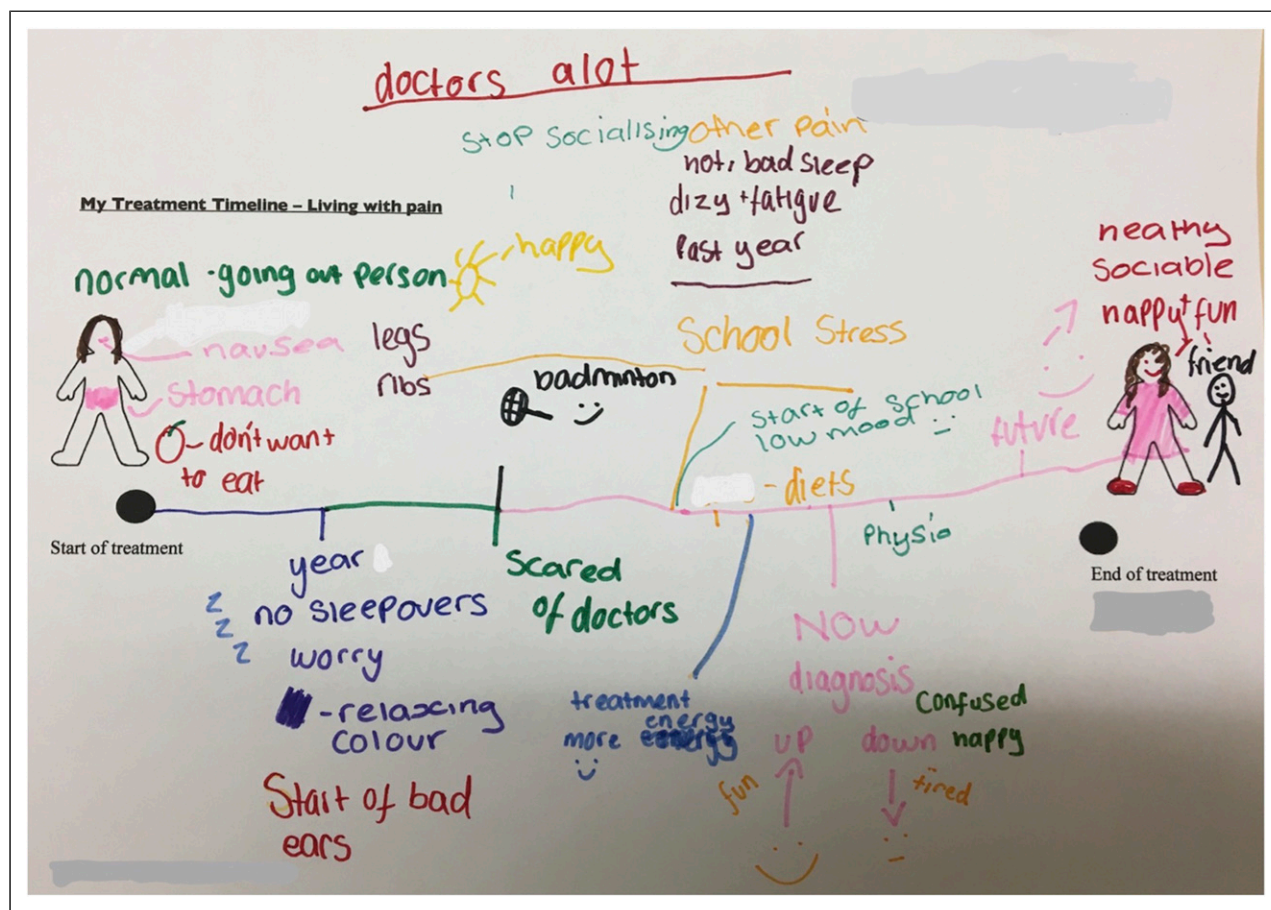 doctors alot
stop socialising
other pain
hot, bad sleep
dizy + fatigue
Past year
My Treatment Timeline – Living with pain
happy
normal - going out person
nausea
stomach
- don't want
to eat
legs
ribs
badminton
School Stress
start of school
low mood
- diets
future
heathy
sociable
happy + fun
friend
Start of treatment
year
z
z
z
no sleepovers
worry
- relaxing
colour
Start of bad
ears
Scared
of doctors
treatment
energy
more
Physio
NOW
diagnosis
up
down
Confused
happy
fun
tired
End of treatment